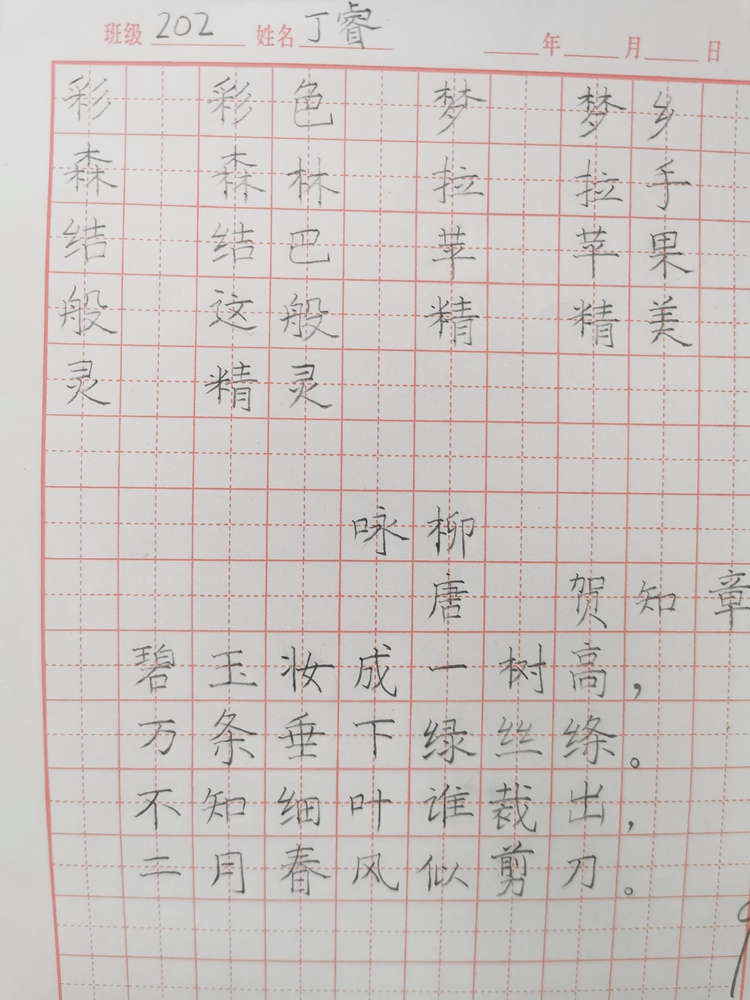 班级 202 姓名 丁睿 年 月 日
彩 彩色 梦 梦乡
森 森林 拉 拉手
结 结巴 苹 苹果
般 这般 精 精美
灵 精灵
咏柳
唐 贺知章
碧玉妆成一树高,
万条垂下绿丝绦。
不知细叶谁裁出,
二月春风似剪刀。